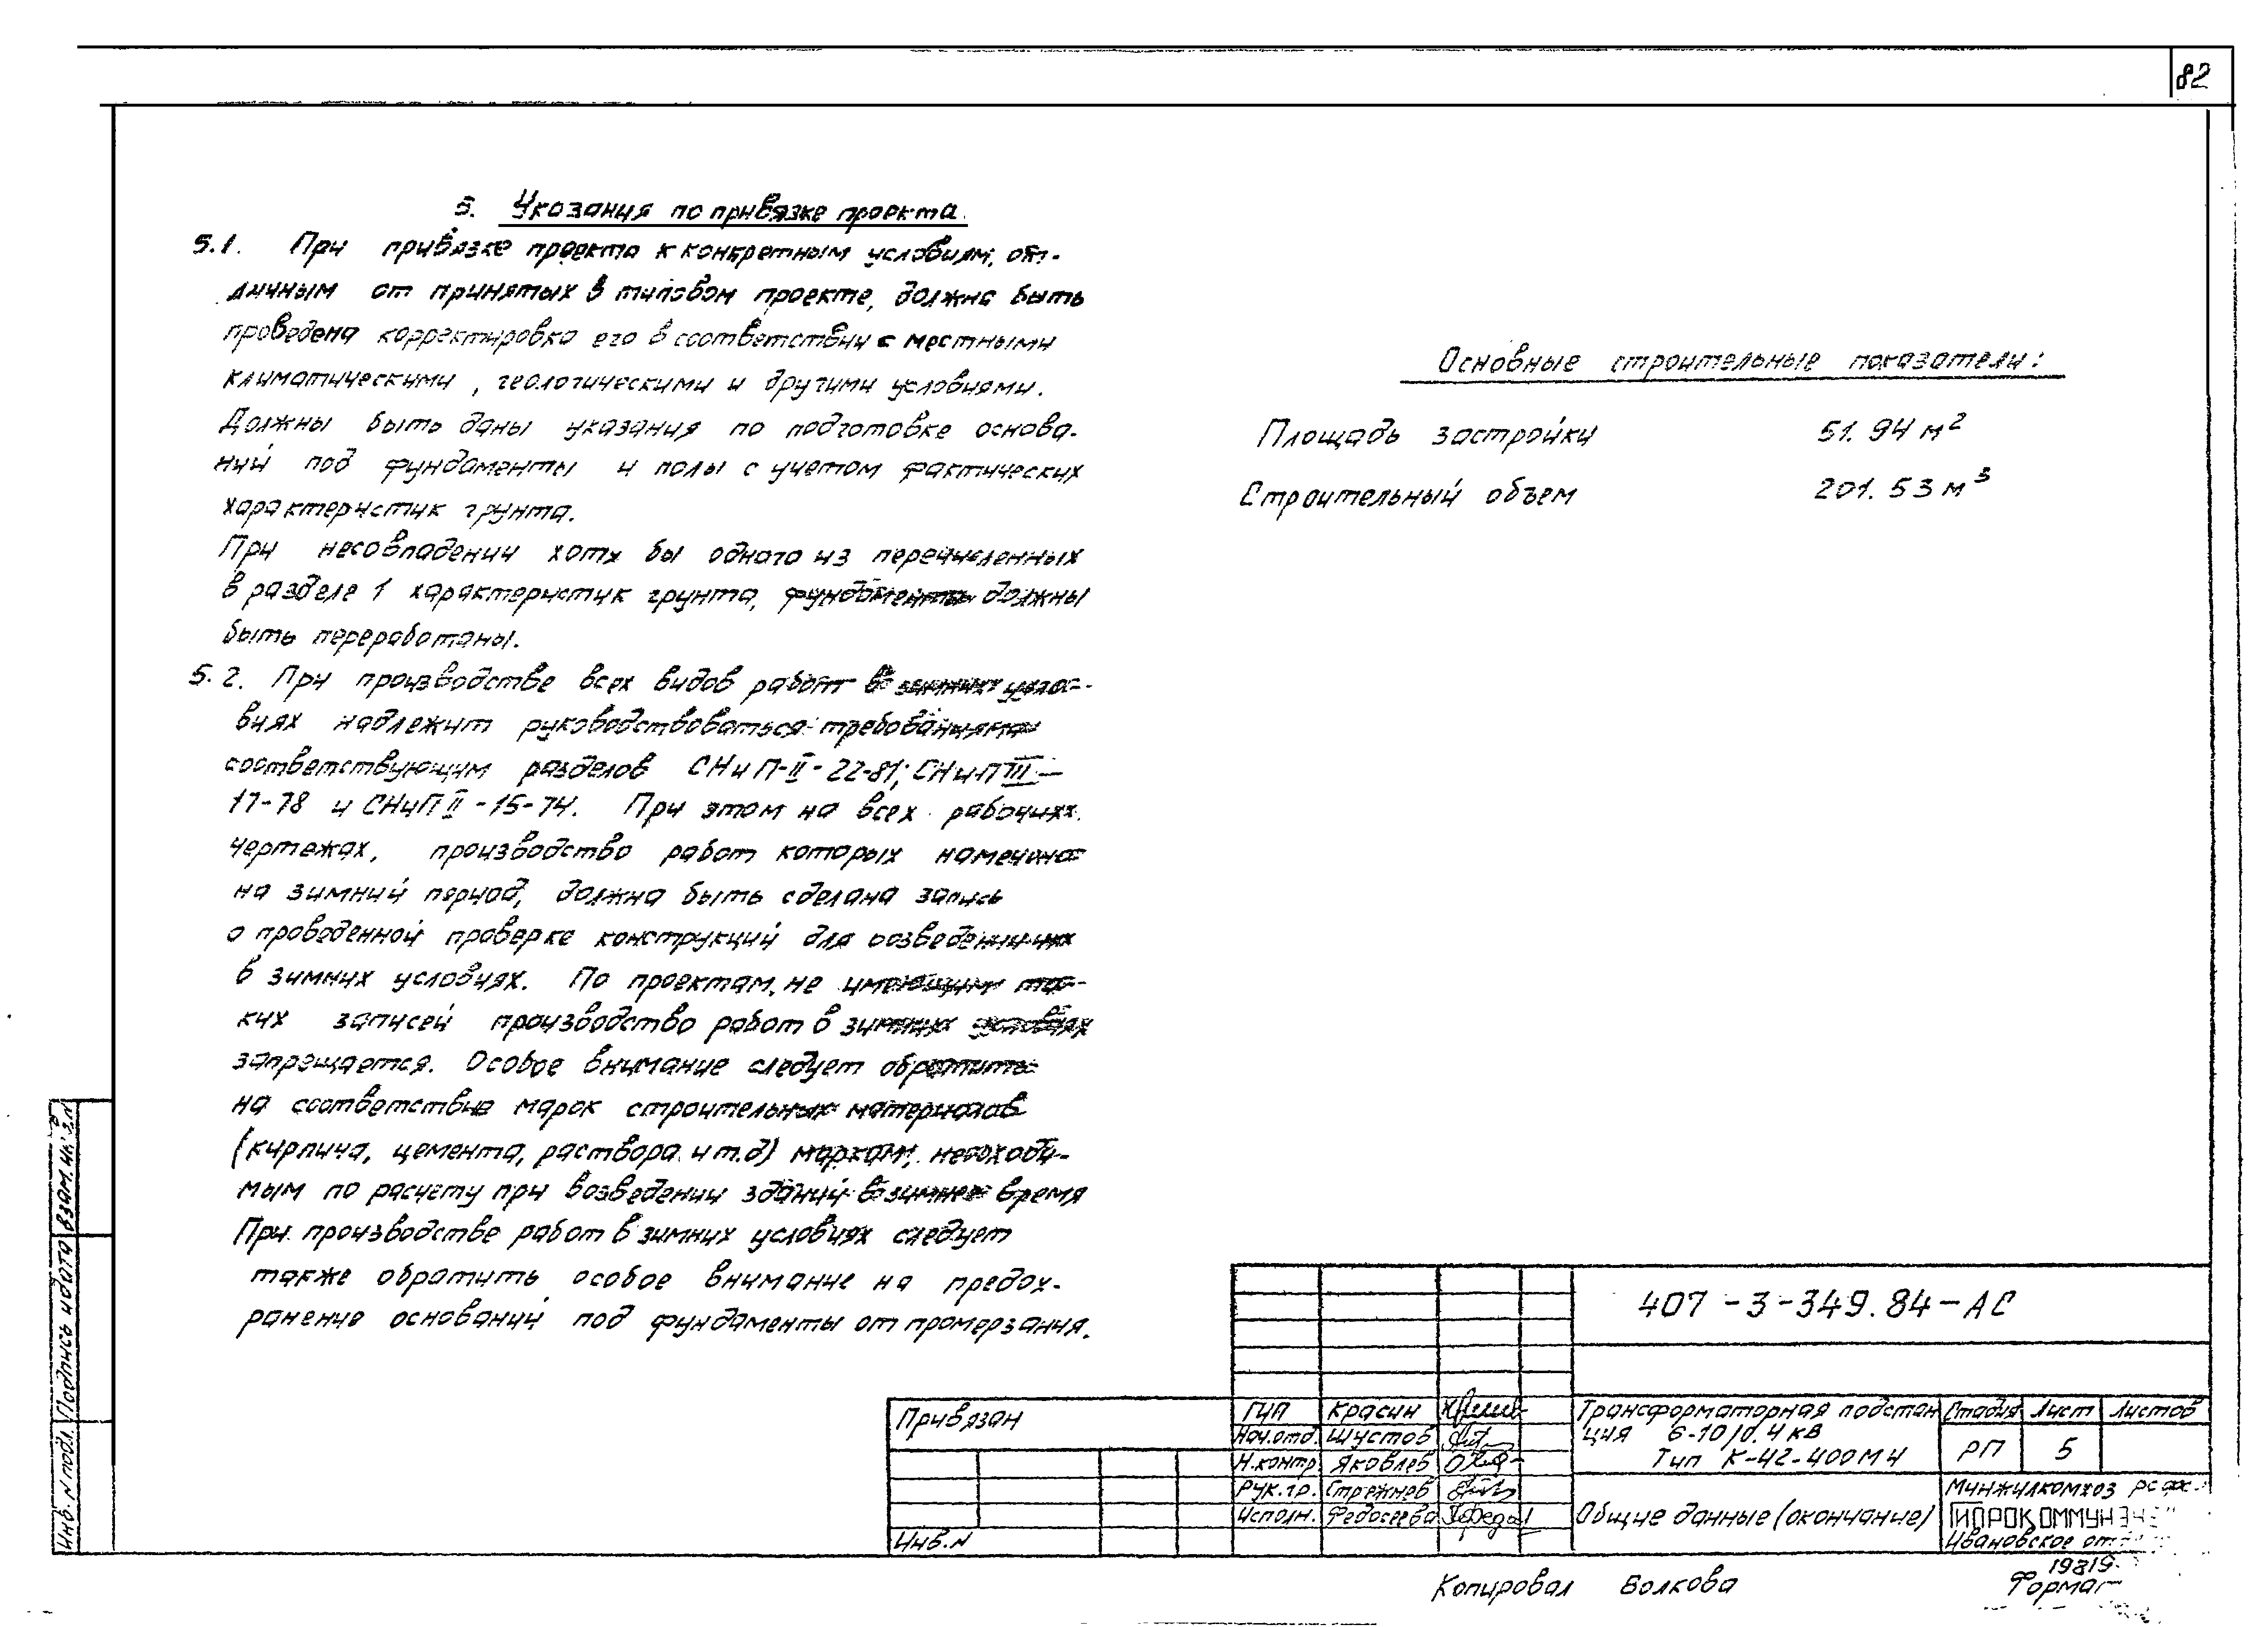 82
5. Указания по привязке проекта.
5.1. При привязке проекта к конкретным условиям, от-
личным от принятых в типовом проекте, должна быть
проведена корректировка его в соответствии с местными
климатическими, геологическими и другими условиями.
Должны быть даны указания по подготовке основа-
ний под фундаменты и полы с учетом фактических
характеристик грунта.
При несовпадении хотя бы одного из перечисленных
в разделе 1 характеристик грунта, фундаменты должны
быть переработаны.
5.2. При производстве всех видов работ в зимних усло-
виях надлежит руководствоваться требованиями
соответствующим разделов СНиП-II-22-81; СНиП III-
17-78 и СНиП II-15-74. При этом на всех рабочих
чертежах, производство работ которых намечено
на зимний период, должна быть сделана запись
о проведенной проверке конструкций для возведения их
в зимних условиях. По проектам, не имеющим та-
ких записей производство работ в зимних условиях
запрещается. Особое внимание следует обратить
на соответствие марок строительных материалов
(кирпича, цемента, раствора и т.д) маркам, необходи-
мым по расчету при возведении зданий в зимнее время
При производстве работ в зимних условиях следует
также обратить особое внимание на предох-
ранение оснований под фундаменты от промерзания.
Основные строительные показатели:
Площадь застройки 51.94 м²
Строительный объем 201.53 м³
407-3-349.84-АС
Привязан
Инв.N
ГИП Красин
Нач.отд. Шустов
Н.контр. Яковлев
Рук.гр. Стрежнев
Исполн. Федосеева
Трансформаторная подстан
ция 6-10/0.4 кв
Тип К-42-400М4
Стадия Лист Листов
РП 5
Общие данные (окончание)
Минжилкомхоз РСФС
Ивановское от
19819
Копировал Волкова
Формат
Инв. N подл. Подпись и дата Взам. ин